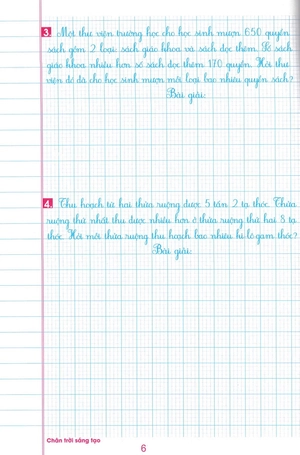 3. Một thư viện trường học cho học sinh mượn 650 quyển
sách gồm 2 loại: sách giáo khoa và sách đọc thêm. Số sách
giáo khoa nhiều hơn số sách đọc thêm 170 quyển. Hỏi thư
viện đó đã cho học sinh mượn mỗi loại bao nhiêu quyển sách?
Bài giải:
4. Thu hoạch từ hai thửa ruộng được 5 tấn 2 tạ thóc. Thửa
ruộng thứ nhất thu được nhiều hơn ở thửa ruộng thứ hai 8 tạ
thóc. Hỏi mỗi thửa ruộng thu hoạch bao nhiêu ki-lô-gam thóc?
Bài giải:
Chân trời sáng tạo
6